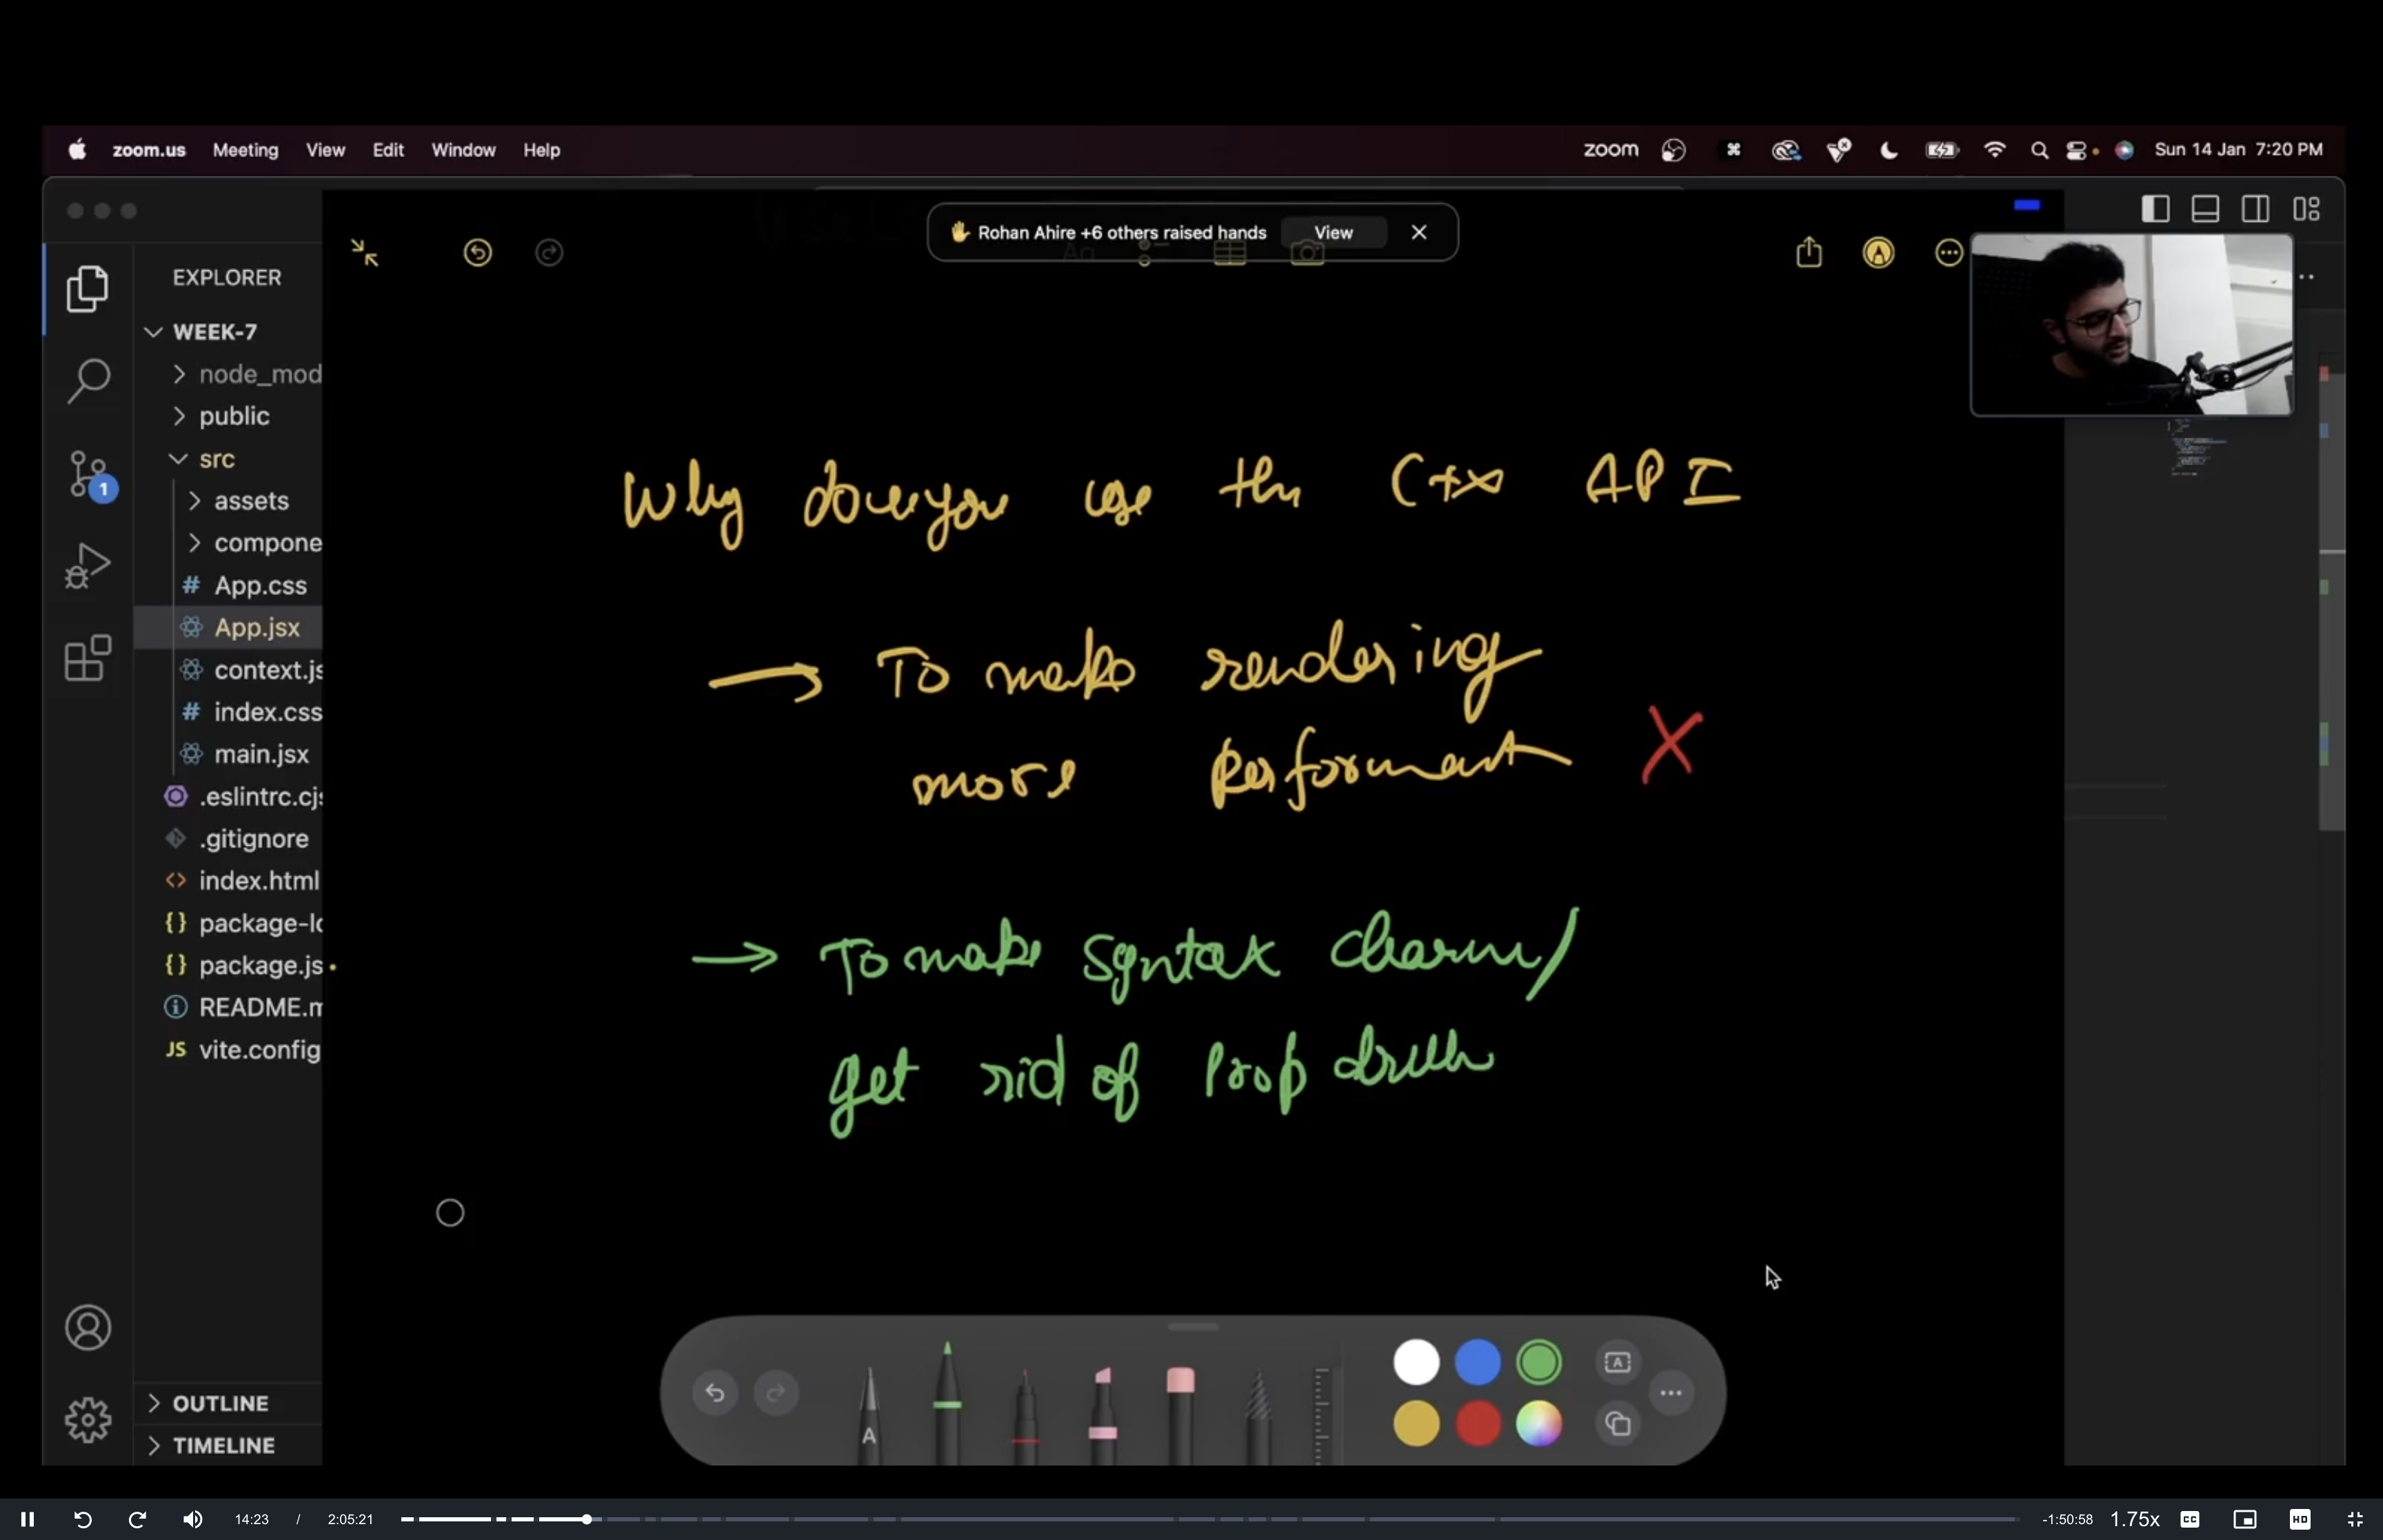 zoom.us Meeting View Edit Window Help
zoom Sun 14 Jan 7:20 PM
Rohan Ahire +6 others raised hands View
EXPLORER
WEEK-7
node_mod
public
src
1
assets
compone
App.css
App.jsx
context.js
index.css
main.jsx
.eslintrc.cjs
.gitignore
index.html
package-lo
package.js
README.m
vite.config
OUTLINE
TIMELINE
Why do you use the Ctx API
To make rendering
more performant X
To make syntax cleaner/
get rid of prop drill
A
A
14:23 / 2:05:21
-1:50:58 1.75x CC HD